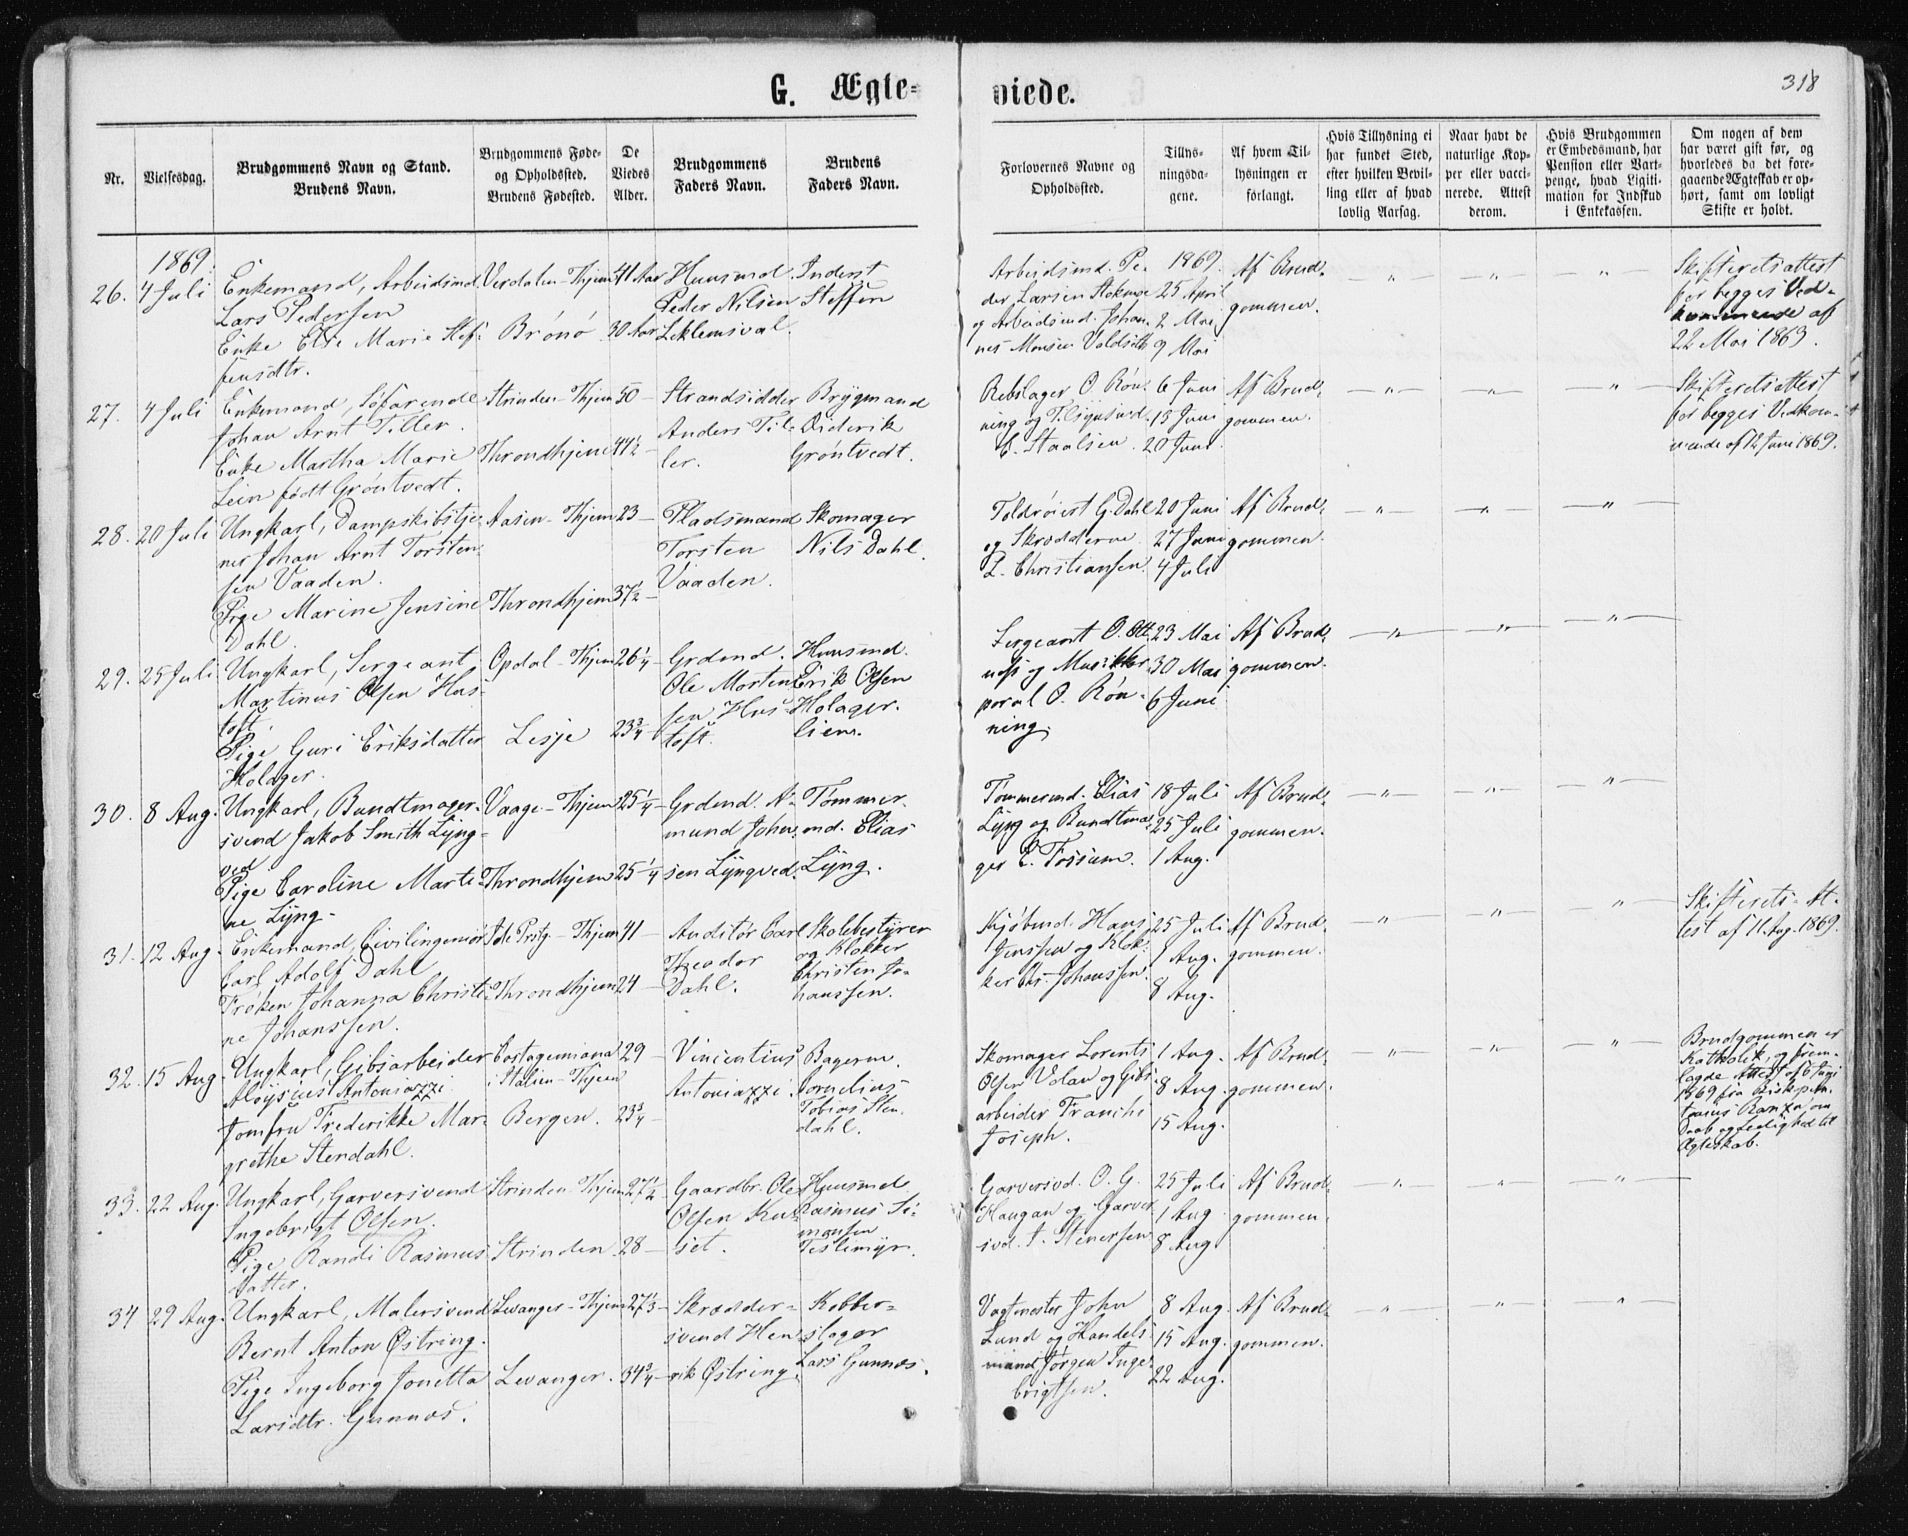 G. Ægte-
viede.
318
Nr.
Vielsesdag.
Brudgommens Navn og Stand.
Brudens Navn.
Brudgommens Føde-
og Opholdssted.
Brudens Fødested.
De
Viedes
Alder.
Brudgommens
Faders Navn.
Brudens
Faders Navn.
Forlovernes Navne og
Opholdssted.
Tillys-
ningsda-
gene.
Af hvem Til-
lysningen er
forlangt.
Hvis Tillysning ei
har fundet Sted,
efter hvilken Bevil-
ling eller af hvad
lovlig Aarsag.
Naar havt de
naturlige Kop-
per eller vacci-
nerede. Attest
derom.
Hvis Brudgommen
er Embedsmand, har
Pension eller Vart-
penge, hvad Ligiti-
mation for Indskud
i Enkekassen.
Om nogen af dem
har været gift før, og
hvorledes da det fore-
gaaende Ægteskab er op-
hørt, samt om lovligt
Skifte er holdt.
1869.
26.
4 Juli
Enkemand, Arbeidsmd.
Lars Pedersen
Enke Else Marie Stef-
fensdtr.
Verdalen - Thjem
Brónó
41 Aar
30 Aar
Huusmd.
Peder Nilsen
Leklemsval.
Inderst
Steffen
Arbeidsmd. Pe-
der Larsen Stokmoe
og Arbeidsmd. Johan-
nes Monsen Valdsøtb
1869.
25 April
2 Mai
9 Mai
Af Brud-
gommen.
— " —
— " —
— " —
Skifteretsattest
for begges Ved-
kommende af
22 Mai 1869.
27.
4 Juli
Enkemand, Söfarende
Johan Arnt Tiller.
Enke Martha Marie
Lein födt Gröntvedt.
Strinden - Thjem
Throndhjem
50 —
44½ —
Strandsidder
Anders Til-
ler.
Brygmand
Diderik
Gröntvedt.
Rebslager O. Rön-
ning og Tilsynsmd.
E. Staalsen.
6 Juni
13 Juni
20 Juni
Af Brud-
gommen.
— " —
— " —
— " —
Skifteretsattest
for begges Vedkom-
mende af 12 Juni 1869.
28.
20 Juli
Ungkarl, Dampskibstje-
ner Johan Arnt Torsten-
sen Vaaden.
Pige Marine Jensine
Dahl.
Aasen - Thjem
Throndhjem
23 —
37½ —
Pladsmand
Torsten
Vaaden.
Skomager
Nils Dahl.
Toldróiert G. Dahl
og Skrædderm.
L. Christiansen.
20 Juni
27 Juni
4 Juli
Af Brud-
gommen.
— " —
— " —
— " —
29.
25 Juli
Ungkarl, Sergeant
Martinus Olsen Hus-
toft.
Pige Guri Eriksdatter
Holager.
Opdal - Thjem
Lesje
26¼ —
23¾ —
Grdmd.
Ole Morten-
sen Hus-
toft.
Huusmd.
Erik Olsen
Holager-
lien.
Sergeant O. Ott-
nes og Musikkor-
poral O. Rön-
ning.
23 Mai
30 Mai
6 Juni
Af Brud-
gommen.
— " —
— " —
— " —
30.
8 Aug.
Ungkarl, Bundtmager-
svend Jakob Smith Lyng-
ved
Pige Caroline Marti-
ne Lyng.
Vaage - Thjem
Throndhjem
25¼ —
25¼ —
Grdmd. A-
mund John-
sen Lyngved.
Tómmer-
md. Elias
Lyng.
Tömmermd. Elias
Lyng og Bundtma-
ger E. Fossum.
18 Juli
25 Juli
1 Aug.
Af Brud-
gommen.
— " —
— " —
— " —
31.
12 Aug.
Enkemand, Civilingeniör
Carl Adolf Dahl
Fröken Johanna Christi-
ne Johanssen.
Ide Prstg. - Thjem
Throndhjem
41 —
24 —
Auditör Carl
Theodor
Dahl.
Skolebestyrer
og Klokker
Christen Jo-
hanssen.
Kjöbmd. Hans
Jenssen og Klok-
ker Chr. Johanssen.
25 Juli
1 Aug.
8 Aug.
Af Brud-
gommen.
— " —
— " —
— " —
Skifterets-At-
test af 11. Aug. 1869.
32.
15 Aug.
Ungkarl, Gibsarbeider
Aloysius Antoniazzi
Jomfru Frederikke Mar-
grethe Stendahl.
Costageminiana
i Italien - Thjem
Bergen.
29 —
23¾ —
Vincentius
Antoniazzi.
Bagerm.
Cornelius
Tobias Sten-
dahl.
Skomager Lorents
Olsen Volan og Gibs-
arbeider Franchi
Joseph.
1 Aug.
8 Aug.
15 Aug.
Af Brud-
gommen.
— " —
— " —
— " —
Brudgommen er
Katholik, og frem-
lagde Attest af 6 Juni
1869 fra
Daab og Ledighed til
Ægteskab.
33.
22 Aug.
Ungkarl, Garversvend
Ingebrigt Olsen.
Pige Randi Rasmus-
datter.
Strinden - Thjem
Strinden
27½ —
28 —
Gaardbr. Ole
Olsen Kus-
set.
Huusmd
Rasmus Si-
monsen
Teslimyr.
Garversvd. O. G.
Haugan og Garver-
svd. J. Stenersen
25 Juli
1 Aug.
8 Aug.
Af Brud-
gommen.
— " —
— " —
— " —
34
29 Aug.
Ungkarl, Malersvend
Bernt Anton Østring.
Pige Ingeborg Jonetta
Larsdtr. Gunnes.
Levanger - Thjem
Levanger.
27⅓ —
34¾ —
Skrædder-
svend Hen-
rik Østring.
Kobber-
slager
Lars Gunnes.
Vagtmester John
Lund og Handels-
mand Jörgen Inge-
brigtsen.
8 Aug.
15 Aug.
22 Aug.
Af Brud-
gommen.
— " —
— " —
— " —